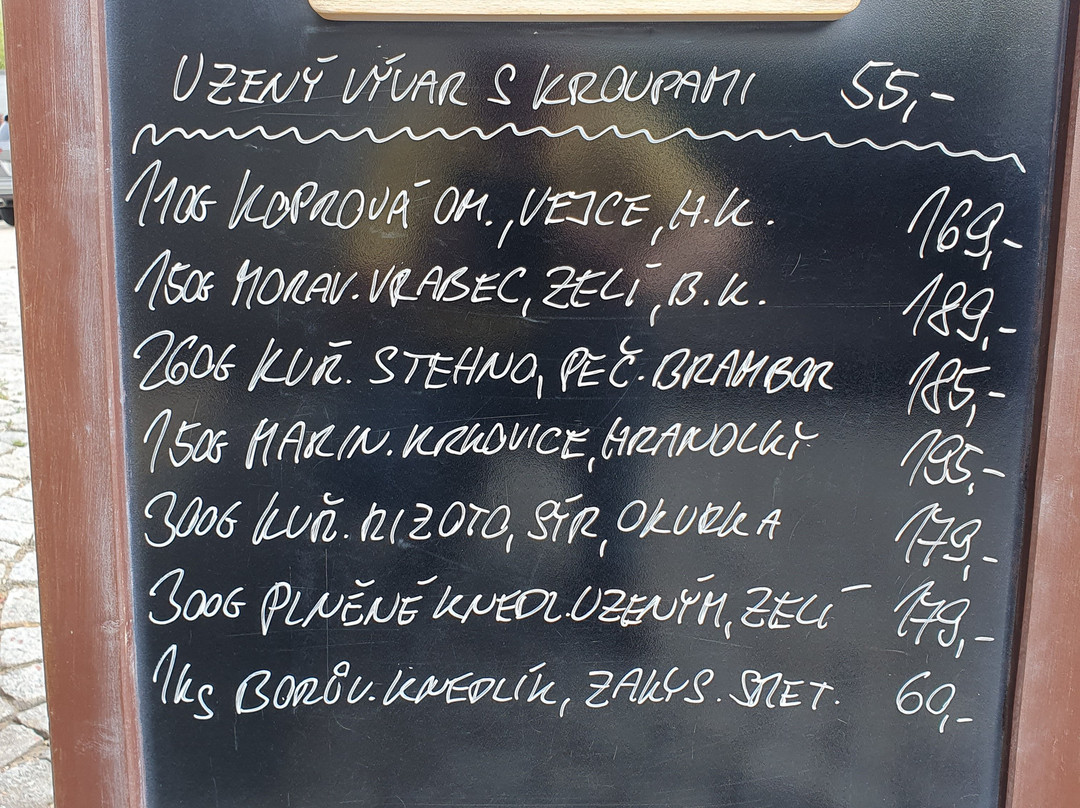 UZENÝ VÝVAR S KROUPAMI 55,-
110G KOPROVÁ OM., VEJCE, H.K. 169,-
150G MORAV. VRABEC, ZELÍ, B.K. 189,-
260G KUŘ. STEHNO, PEČ. BRAMBOR 185,-
150G MARIN. KRKOVICE, HRANOLKY 195,-
300G KUŘ. RIZOTO, SÝR, OKURKA 179,-
300G PLNĚNÉ KNEDL. UZENÝM, ZELÍ 179,-
1KS BORŮV. KNEDLÍK, ZAKYS. SMET. 60,-